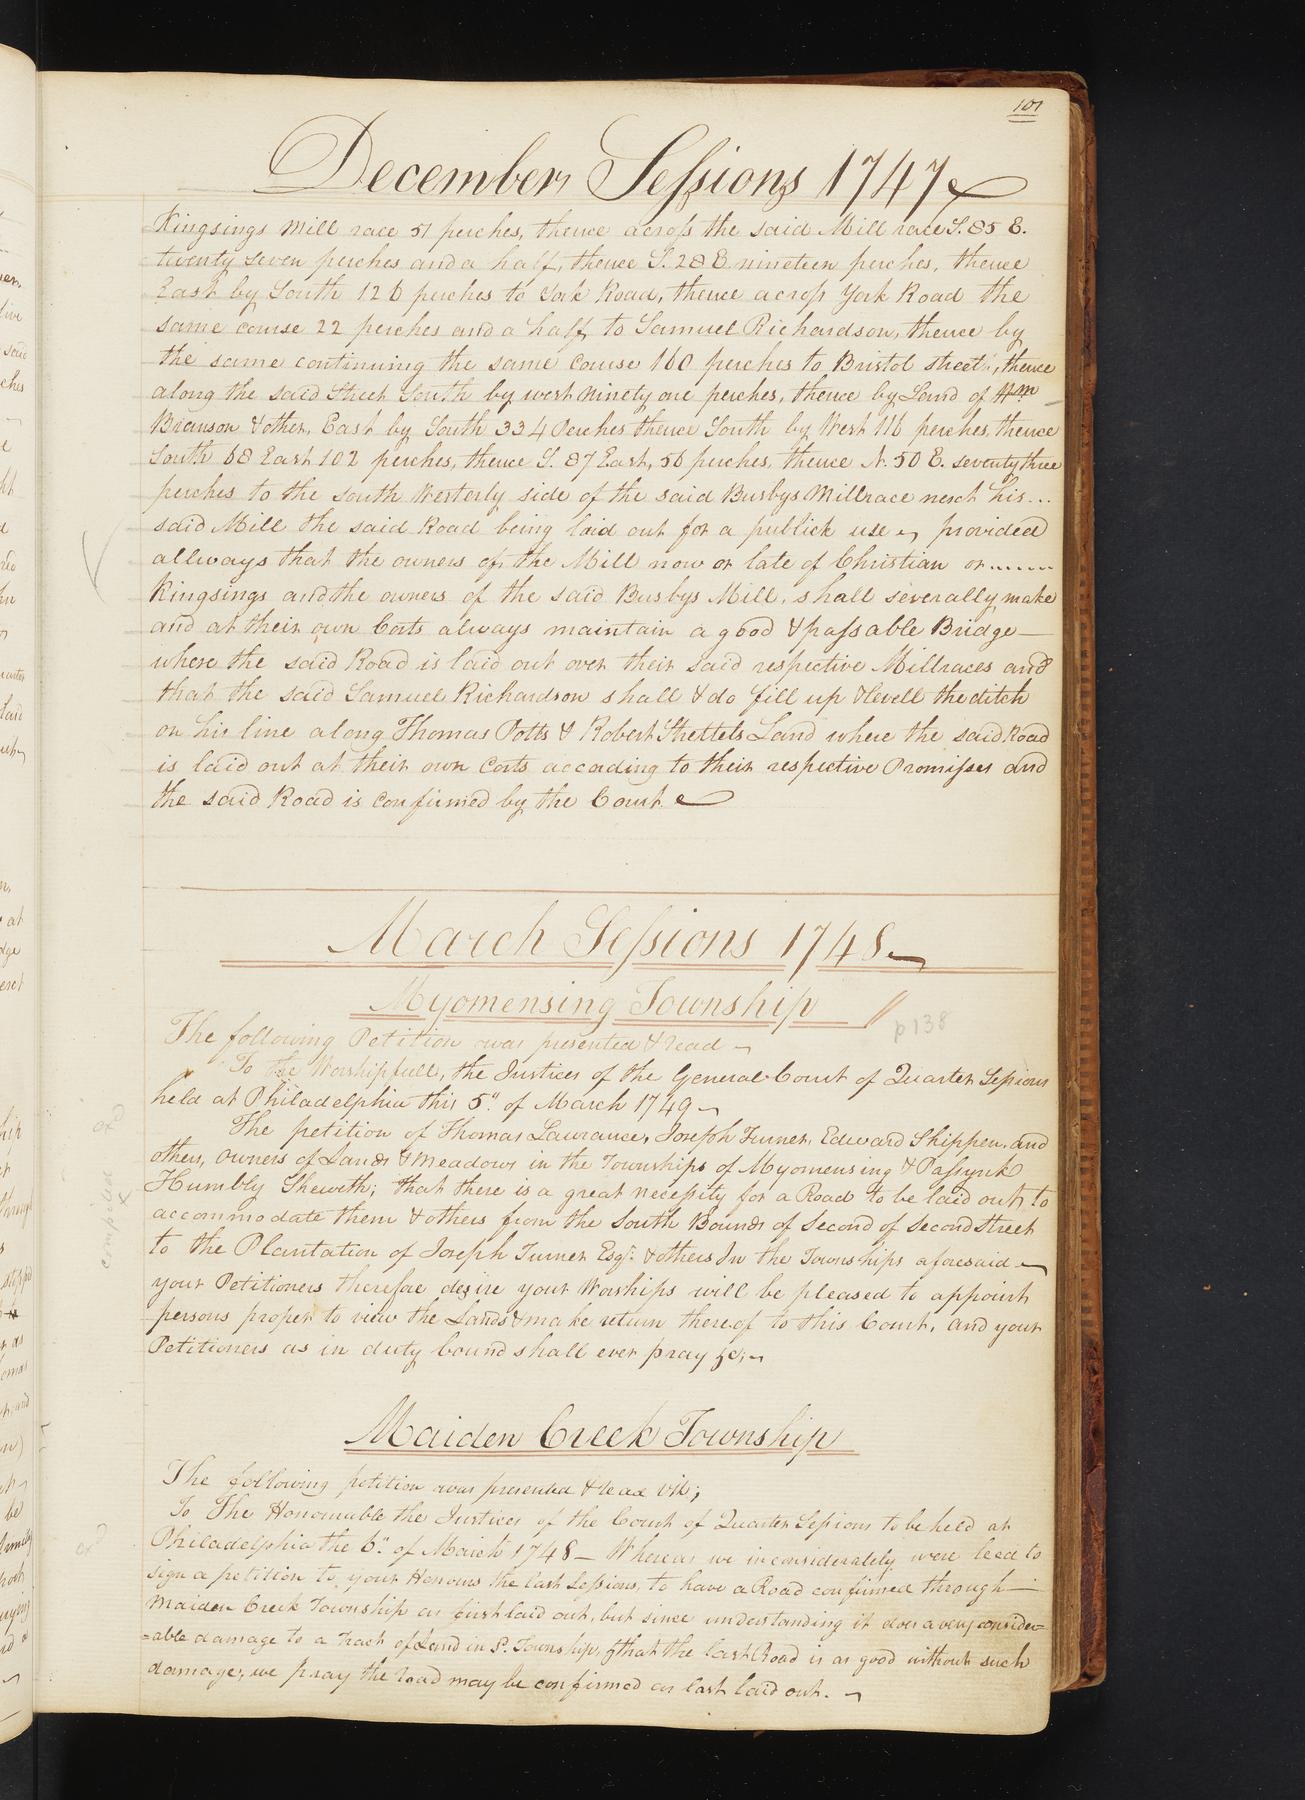 101
December Sessions 1747
Kingsings Mill race 51 perches, thence across the said Mill race S. 85 E.
twenty seven perches and a half, thence S. 28 E nineteen perches, thence
East by South 126 perches to York Road, thence across York Road the
same course 22 perches and a half to Samuel Richardson, thence by
the same continuing the same course 160 perches to Bristol street, thence
along the said Street South by west ninety one perches, thence by Land of Wm
Branson & other, East by South 334 Perches thence South by West 116 perches, thence
South 68 East 102 perches, thence S. 87 East, 56 perches, thence N. 50 E. seventy three
perches to the South Westerly side of the said Busbys Millrace nesct his...
said Mill the said Road being laid out for a publick use provided
allways that the owners of the Mill now or late of Christian or.......
Kingsings and the owners of the said Busbys Mill, shall severally make
and at their own Costs always maintain a good & passable Bridge
where the said Road is laid out over their said respective Millraces and
that the said Samuel Richardson shall & do fill up & levell the ditch
on his line along Thomas Potts & Robert Strettels Land where the said Road
is laid out at their own Costs according to their respective Promisses and
the said Road is confirmed by the Court
March Sessions 1748
Myomensing Township
p138
The following Petition was presented & read
To the Worshipfull, the Justices of the General Court of Quarter Sessions
held at Philadelphia this 5" of March 1749
The petition of Thomas Lawrance, Joseph Turner, Edward Shippen, and
others, owners of Lands & Meadows in the Townships of Myomensing & Passyunk
Humbly Sheweth; that there is a great necessity for a Road to be laid out, to
accommodate them & others from the South Bounds of Second of Second Street
to the Plantation of Joseph Turner Esqr. & others In the Townships aforesaid
your Petitioners therefore desire your Worships will be pleased to appoint
persons proper to view the Lands & make return thereof to this Court, and your
Petitioners as in duty bound shall ever pray &c;
compiled
Maiden Creek Township
The following petition was presented & read viz;
To The Honourable the Justices of the Court of Quarter Sessions to be held at
Philadelphia the 6" of March 1748 – Whereas we inconsiderately were lead to
sign a petition to your Honours the last Sessions, to have a Road confirmed through
Maiden Creek Township as first laid out, but since understanding it does a very consider=
=able damage to a Tract of Land in Sd. Township, & that the last Road is as good without such
damage; we pray the road may be confirmed as last laid out.